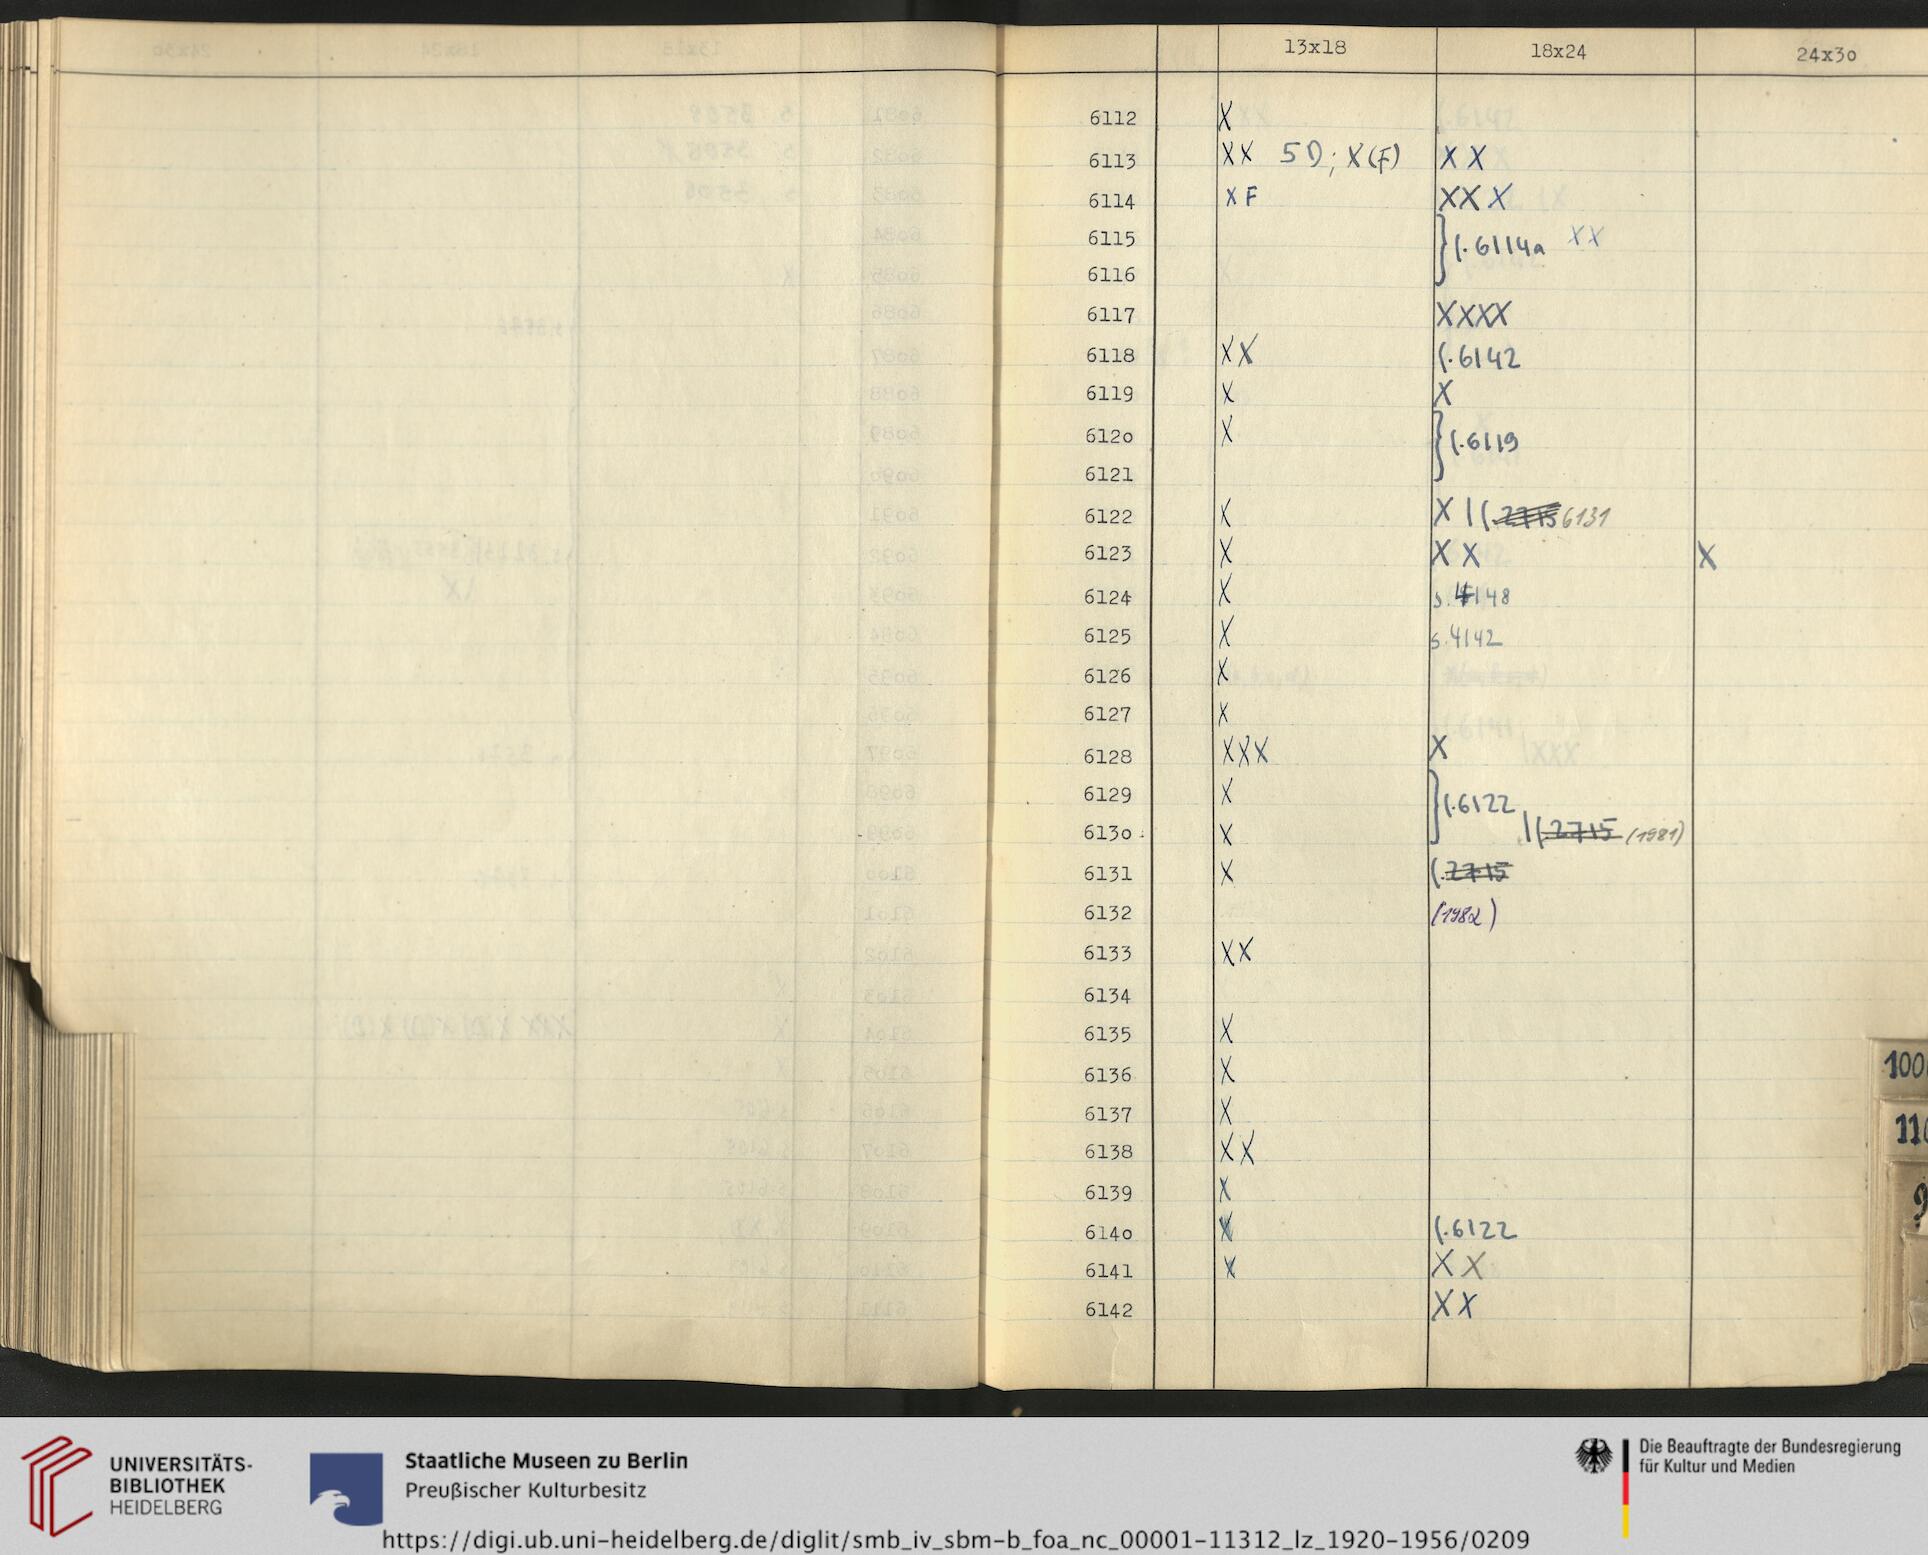 13x18 18x24 24x3o
6112 X
6113 XX 5 D; X(F) X X
6114 X F XX X
6115 } s. 6114a XX
6116
6117 XXXX
6118 XX s. 6142
6119 X X
612o X } s. 6119
6121
6122 X X | s. 2715 6131
6123 X X X X
6124 X s. 4148
6125 X s. 4142
6126 X
6127 X
6128 XXX X
6129 X } s. 6122
613o X | s. 2715 (1981)
6131 X s. 2715
6132 (1982)
6133 XX
6134
6135 X
6136 X
6137 X
6138 XX
6139 X
614o X s. 6122
6141 X X X
6142 XX
100
11
UNIVERSITÄTS-
BIBLIOTHEK
HEIDELBERG
Staatliche Museen zu Berlin
Preußischer Kulturbesitz
Die Beauftragte der Bundesregierung
für Kultur und Medien
https://digi.ub.uni-heidelberg.de/diglit/smb_iv_sbm-b_foa_nc_00001-11312_lz_1920-1956/0209